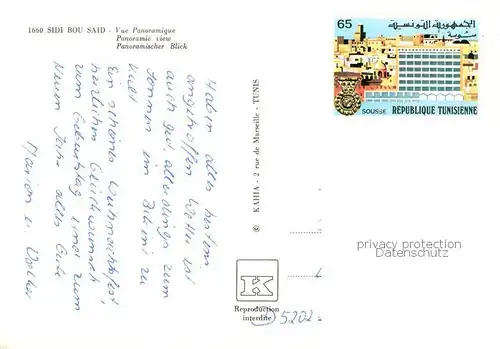 1660 SIDI BOU SAID - Vue Panoramique
Panoramic view
Panoramischer Blick
Haben alles bestens
angetroffen Wetter ist
auch gut allerdings zum
Sonnen im Bikini zu
kalt
Ein schönes Weihnachtsfest,
herzlichen Glückwunsch
zum Geburtstag und zum
Neuen Jahr alles Gute
Marion u.
© KAHIA - 2 rue de Marseille - TUNIS
K
Reproduction
interdite
5202
65
الجمهورية التونسية
سوسة
SOUSSE
REPUBLIQUE TUNISIENNE
privacy protection
Datenschutz